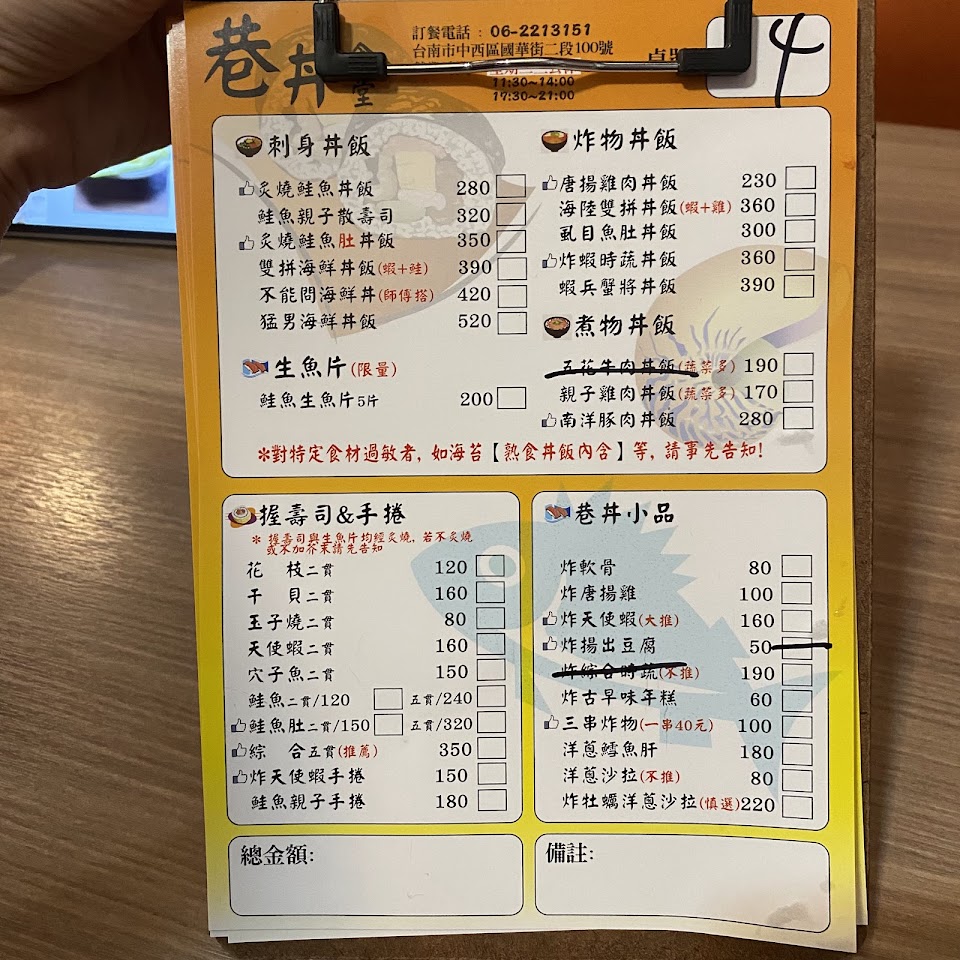 巷丼食堂
訂餐電話：06-2213151
台南市中西區國華街二段100號
11:30~14:00
17:30~21:00
4
刺身丼飯
炙燒鮭魚丼飯 280
鮭魚親子散壽司 320
炙燒鮭魚肚丼飯 350
雙拼海鮮丼飯(蝦+鮭) 390
不能問海鮮丼(師傅搭) 420
猛男海鮮丼飯 520
生魚片(限量)
鮭魚生魚片5片 200
炸物丼飯
唐揚雞肉丼飯 230
海陸雙拼丼飯(蝦+雞) 360
虱目魚肚丼飯 300
炸蝦時蔬丼飯 360
蝦兵蟹將丼飯 390
煮物丼飯
五花牛肉丼飯(蔬菜多) 190
親子雞肉丼飯(蔬菜多) 170
南洋豚肉丼飯 280
*對特定食材過敏者, 如海苔【熟食丼飯內含】等, 請事先告知!
握壽司&手捲
* 握壽司與生魚片均經炙燒, 若不炙燒
或不加芥末請先告知
花 枝二貫 120
干 貝二貫 160
玉子燒二貫 80
天使蝦二貫 160
穴子魚二貫 150
鮭魚二貫/120 五貫/240
鮭魚肚二貫/150 五貫/320
綜 合五貫(推薦) 350
炸天使蝦手捲 150
鮭魚親子手捲 180
巷丼小品
炸軟骨 80
炸唐揚雞 100
炸天使蝦(大推) 160
炸揚出豆腐 50
炸綜合時蔬(不推) 190
炸古早味年糕 60
三串炸物(一串40元) 100
洋蔥鱈魚肝 180
洋蔥沙拉(不推) 80
炸牡蠣洋蔥沙拉(慎選) 220
總金額:
備註: